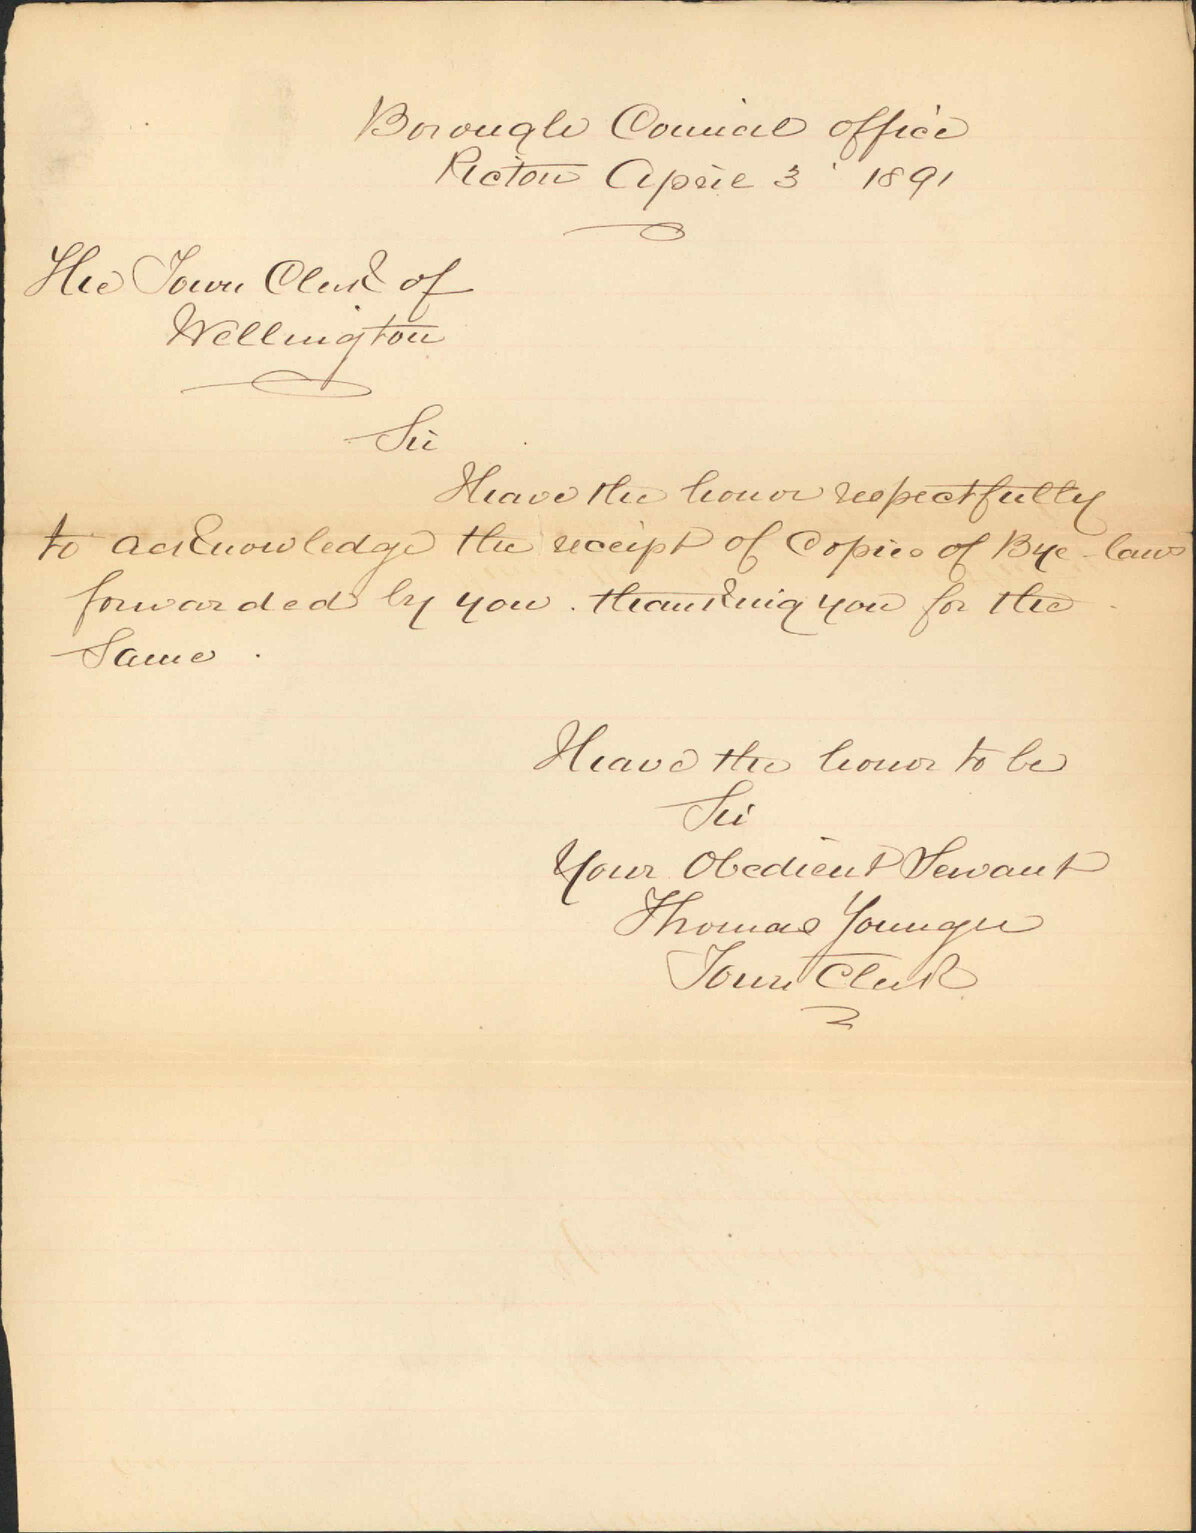 Borough Council office
Picton April 3 1891
The Town Clerk of
Wellington
Sir
Heave the honor respectfully
to acknowledge the receipt of Copies of Bye-laws
forwarded by you. thanking you for the
Same.
Heave the honor to be
Sir
Your Obedient Servant
Thomas Younger
Town Clerk